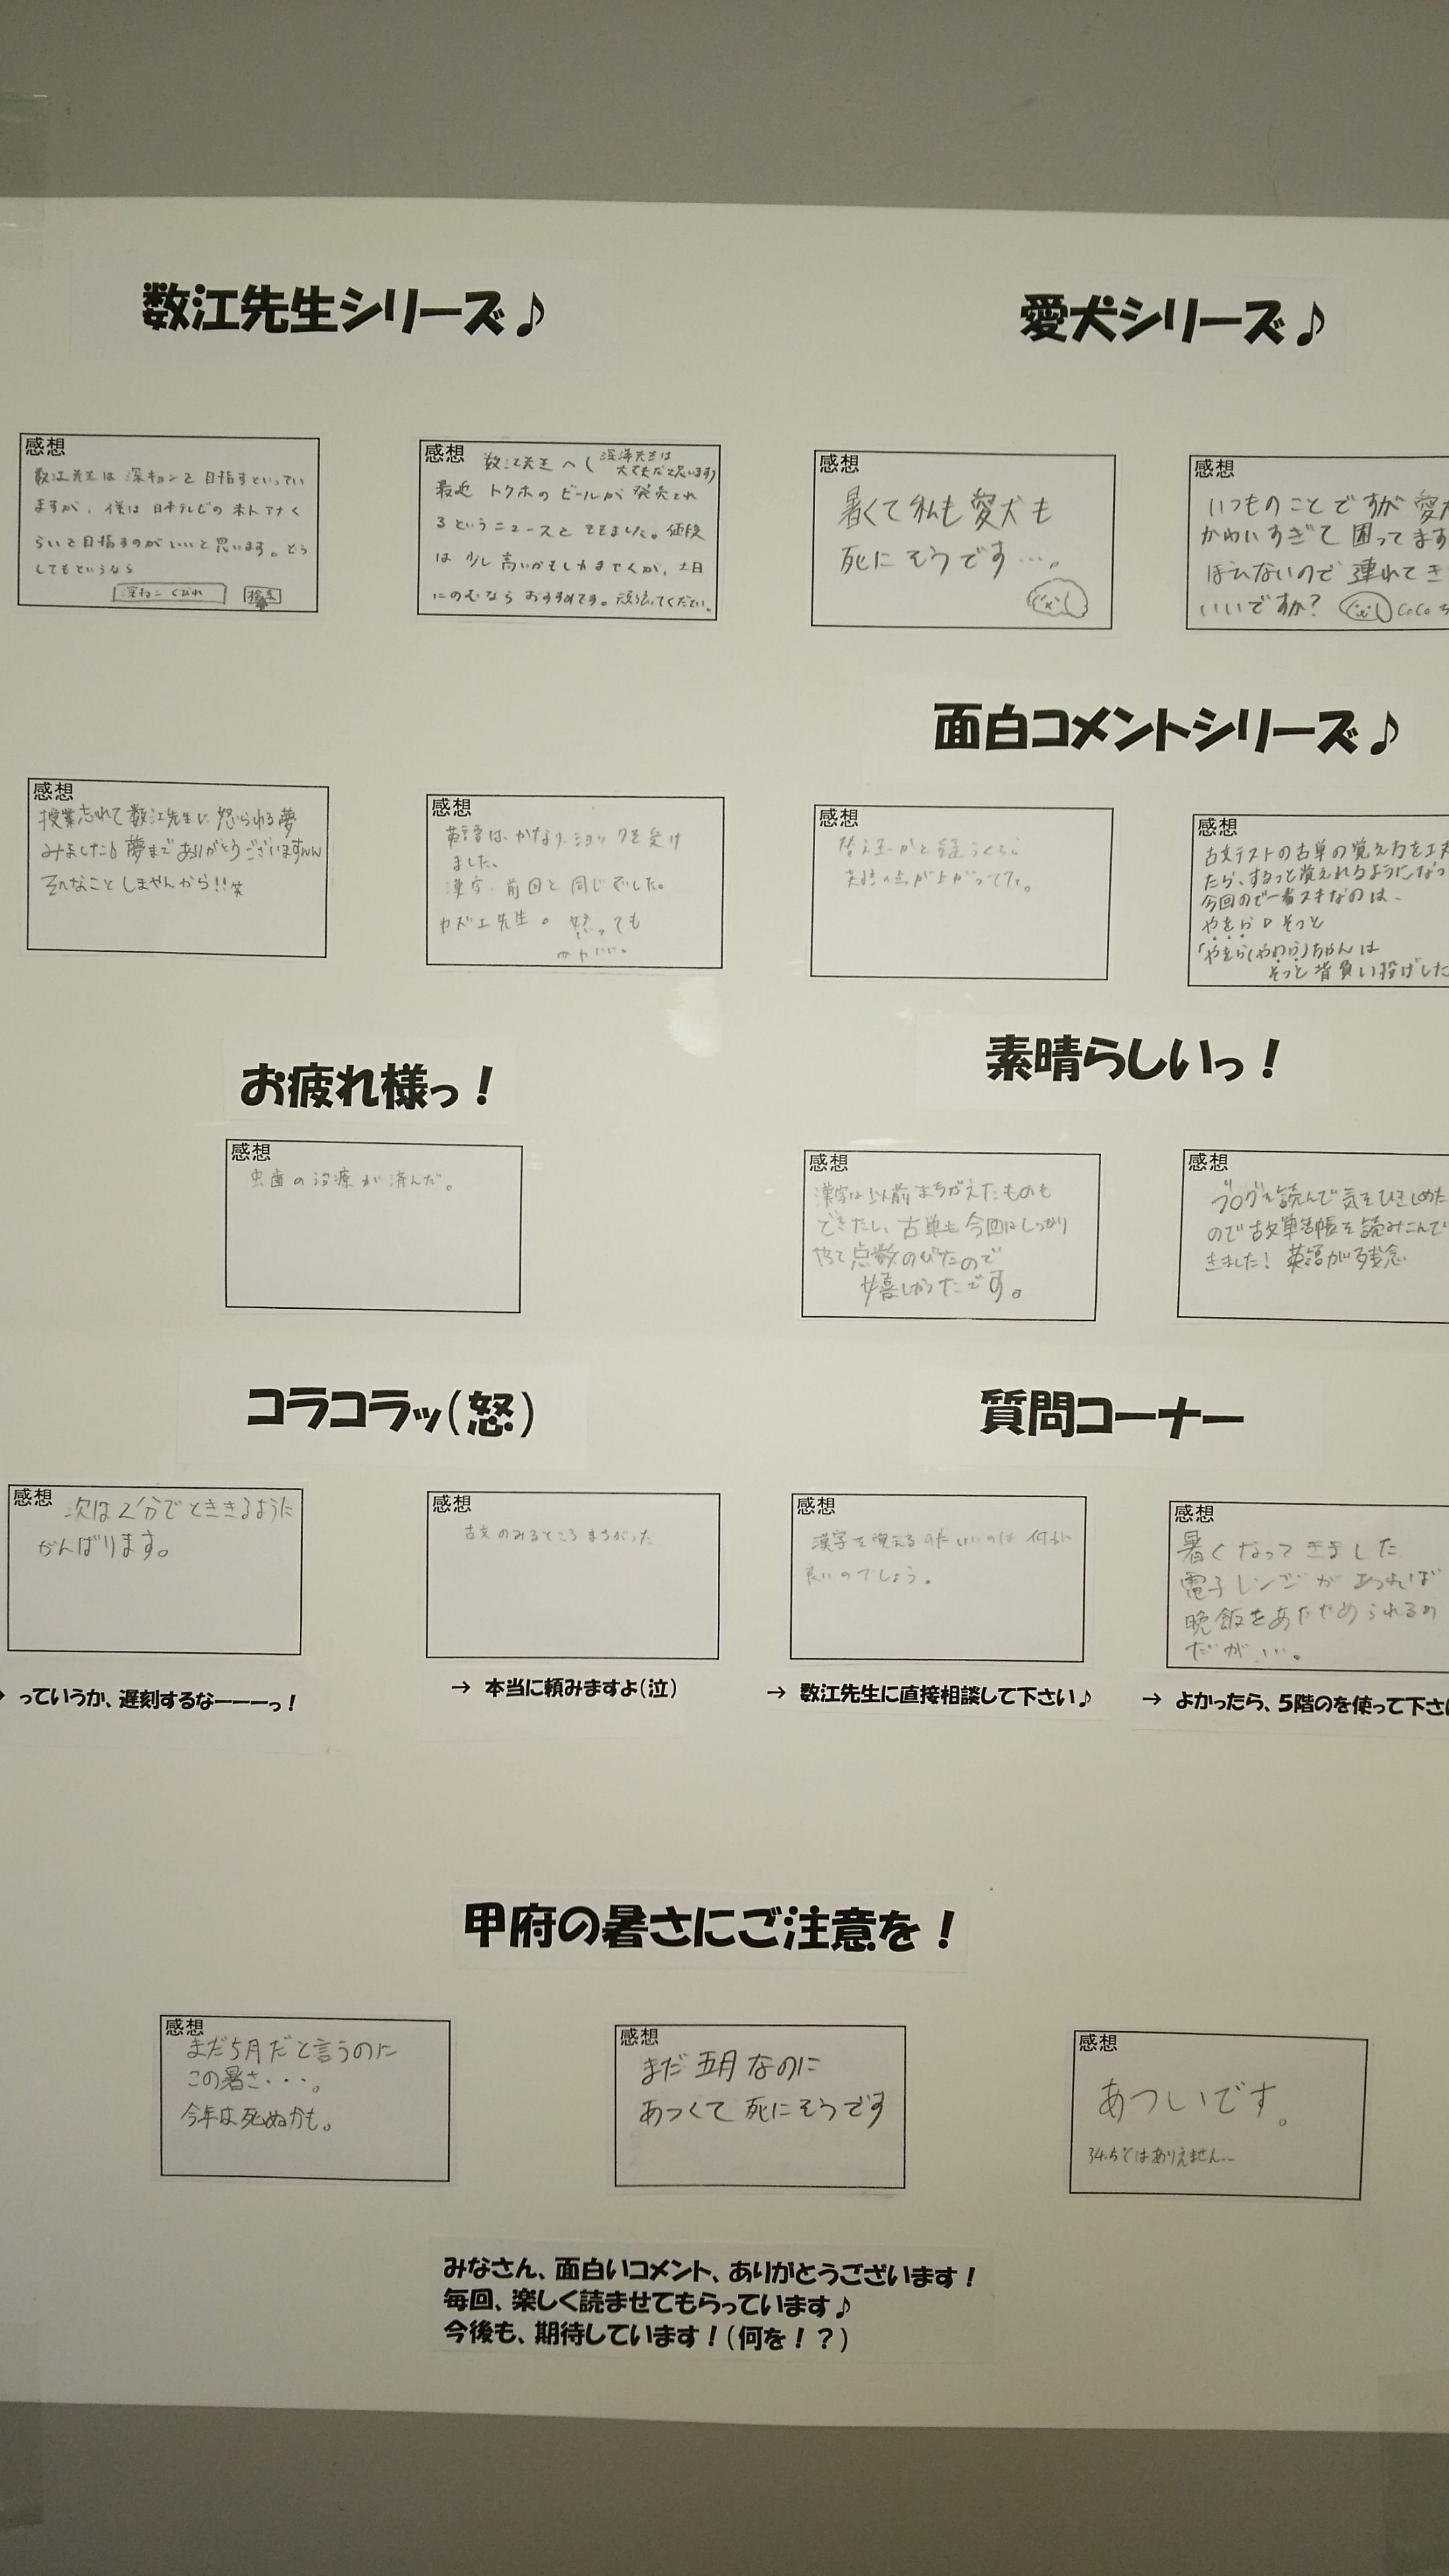 数江先生シリーズ♪
感想
数江先生は深キョンを目指すといってい
ますが、僕は日本テレビの水トアナく
らいを目指すのがいいと思います。どう
してもというなら
深キョン くびれ 検索
感想
数江先生へ(深澤先生は
大丈夫だと思います)
最近 トクホの ビールが 発売され
るというニュースを 見ました。値段
は 少し 高いかもしれませんが、土日
にのむなら おすすめです。頑張ってください。
感想
授業忘れて数江先生に怒られる夢
みました 夢まで ありがとうございます
そんなことしませんから!!笑
感想
英語は、かなり、ショックを受け
ました。
漢字、前回と同じでした。
カズエ先生 怒っても
愛犬シリーズ♪
感想
暑くて私も愛犬も
死にそうです…。
感想
いつものことですが 愛犬
かわいすぎて 困ってます
ほえないので 連れてき
いいですか? CoCo
面白コメントシリーズ♪
感想
替え玉かと疑うくらい
英語の点が上がってた。
感想
古文テストの古単の覚え方を工夫
たら、するっと覚えれるようになっ
今回ので一番スキなのは、
やをら▷そっと
「やをら(やわら)ちゃんは
そっと 背負い投げした
お疲れ様っ!
感想
虫歯の治療が済んだ。
素晴らしいっ!
感想
漢字は以前まちがえたものも
できたし、古単も今回はしっかり
やって点数のびたので
嬉しかったです。
感想
ブログを読んで気をひきしめた
ので古文単語帳を読みこんで
きました! 英語が残念
コラコラッ(怒)
感想
次は2分でとききるように
がんばります。
→ っていうか、遅刻するなーーーっ!
感想
古文のみるところまちがった
→ 本当に頼みますよ(泣)
質問コーナー
感想
漢字を覚えるのにいいのは 何が
良いのでしょう。
→ 数江先生に直接相談して下さい♪
感想
暑くなってきました
電子レンジがあれば
晩飯をあたためられるの
だが…。
→ よかったら、5階のを使って下さい
甲府の暑さにご注意を!
感想
まだ5月だと言うのに
この暑さ・・・。
今年は死ぬかも。
感想
まだ五月なのに
あつくて死にそうです
感想
あついです。
34.5℃はありえません
みなさん、面白いコメント、ありがとうございます!
毎回、楽しく読ませてもらっています♪
今後も、期待しています!(何を!?)